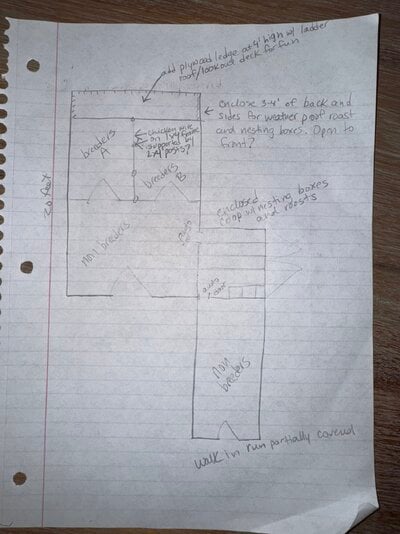 add plywood ledge at 4' high w/ ladder
roof/lookout deck for fun
enclose 3-4' of back and
sides for weather proof roast
and nesting boxes. Open to
front?
chicken wire
on 1x4 frame
supported by
2x4 posts?
breeders
A
breeders
B
20 feet
Non breeders
enclosed
coop w/ nesting boxes
and roosts
auto
door
Non
breeders
walk in run partially covered